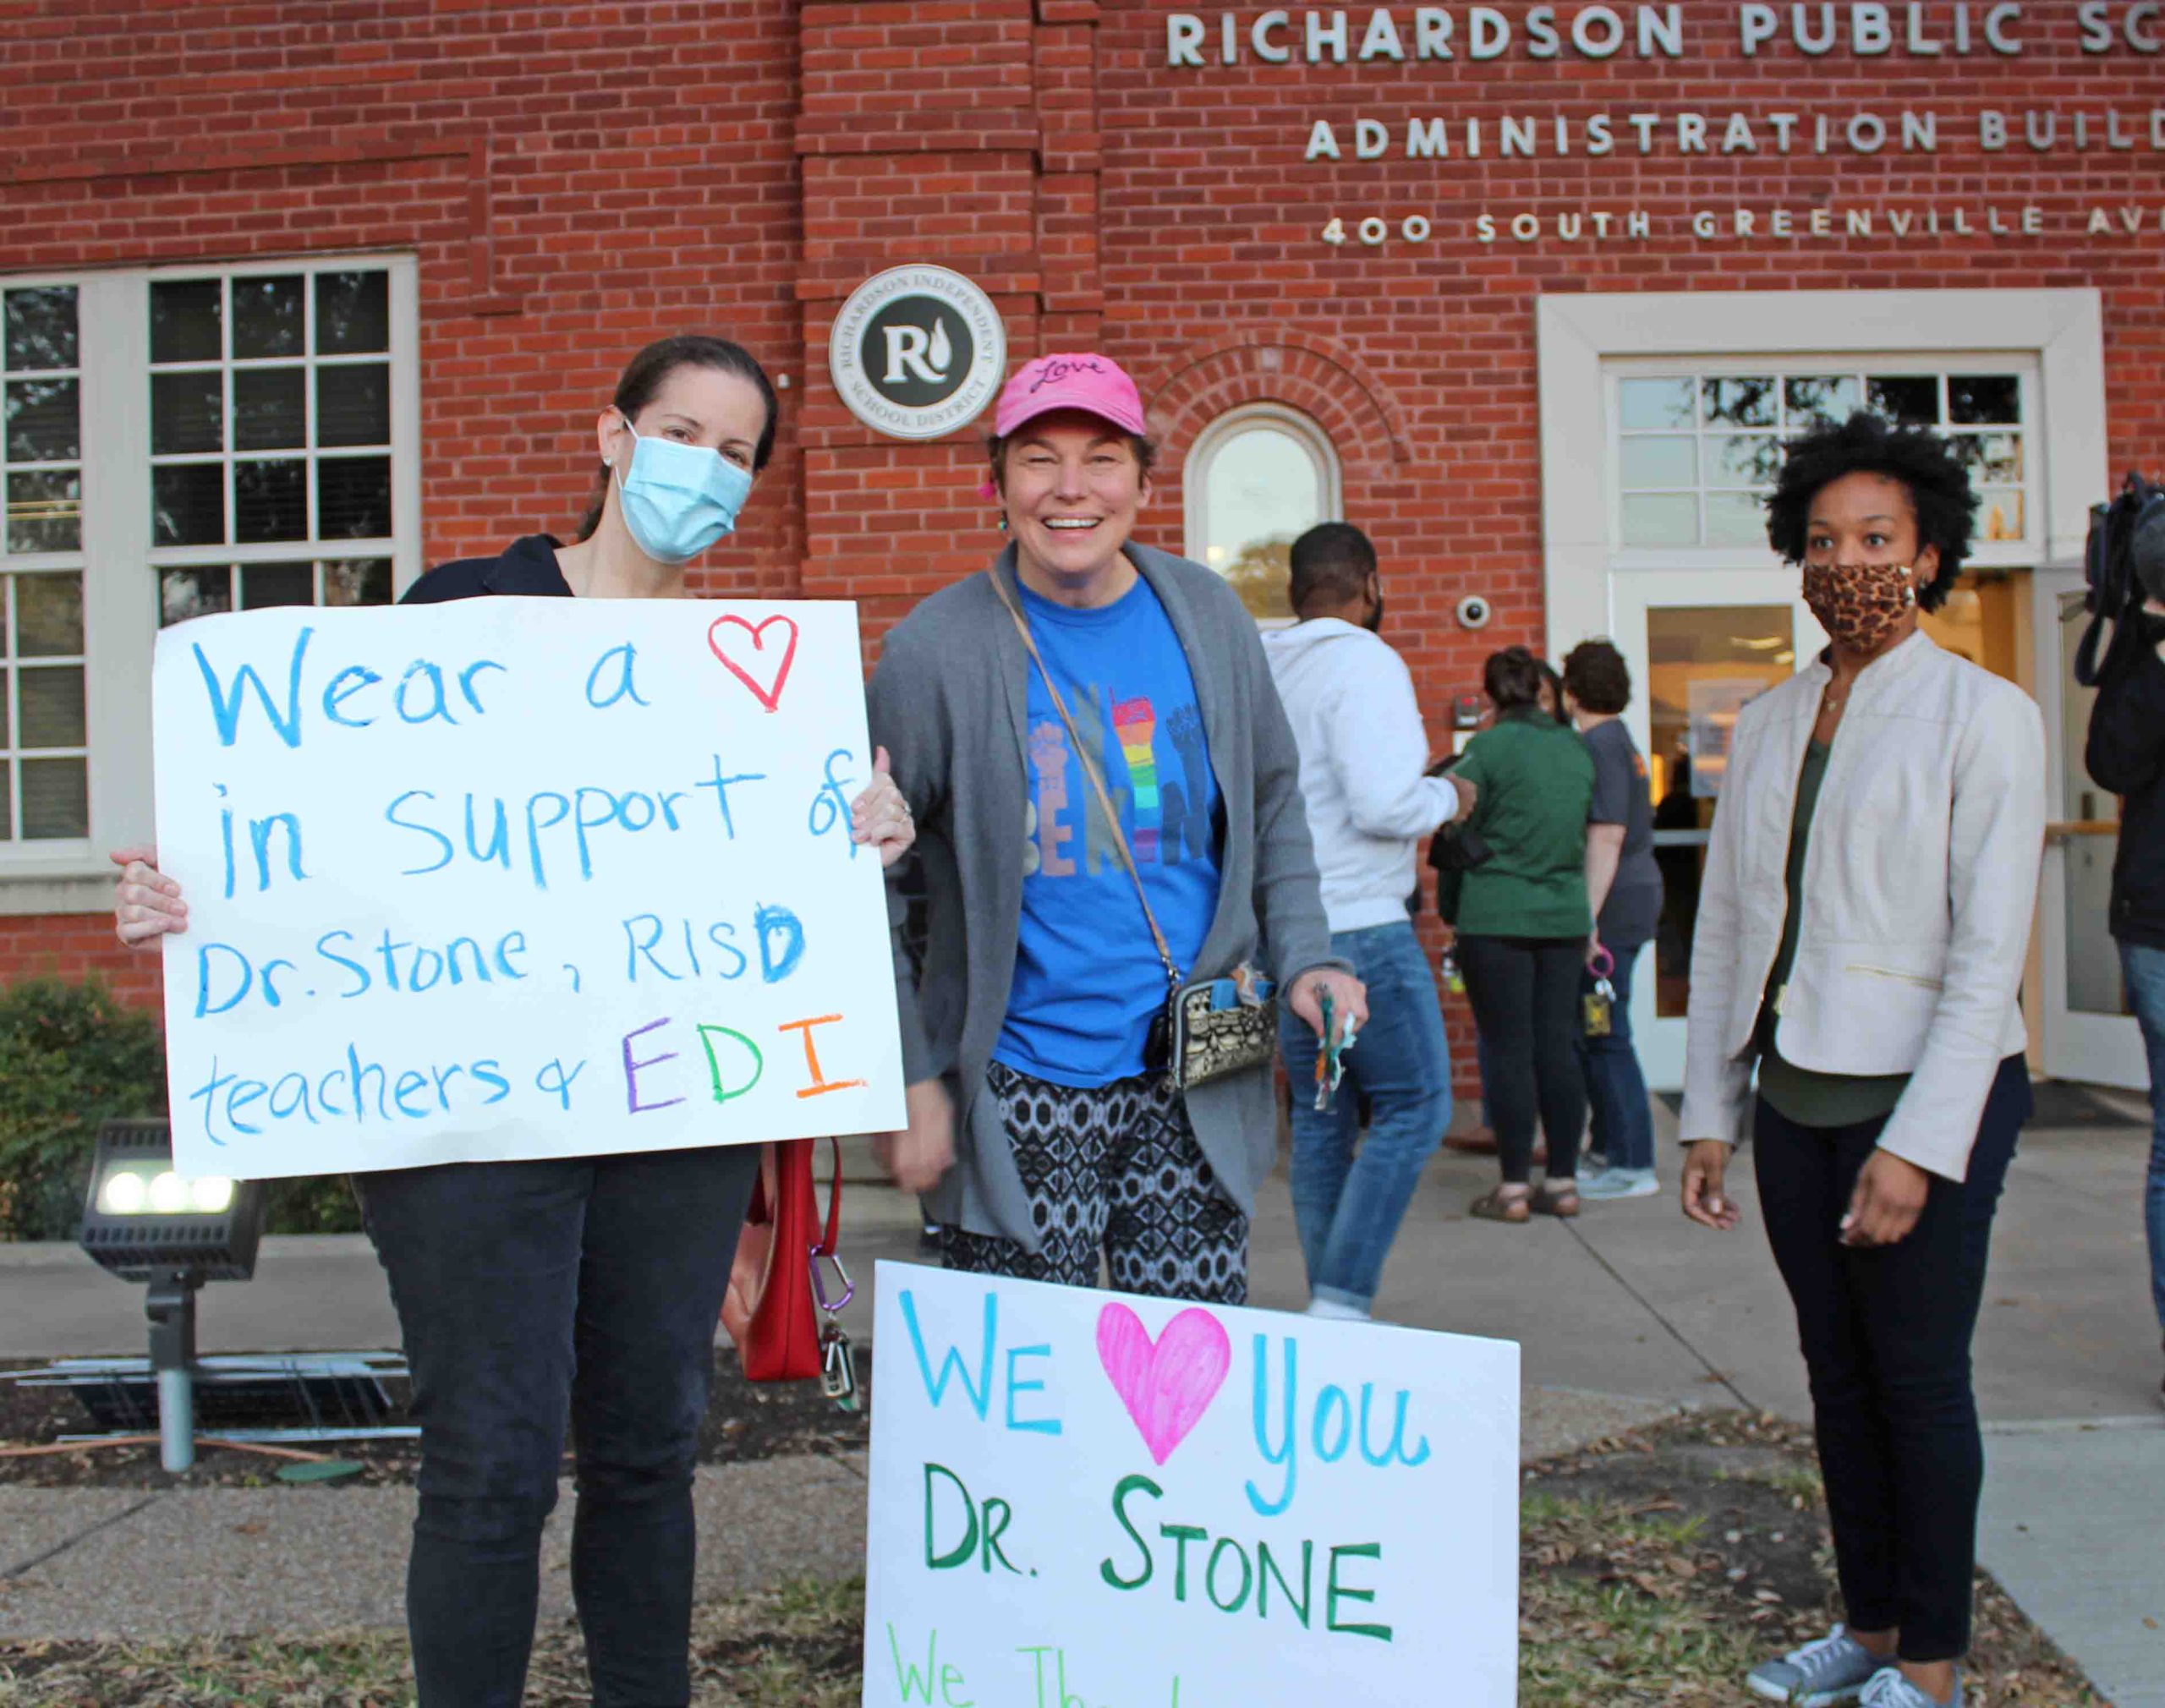 RICHARDSON PUBLIC SC
ADMINISTRATION BUILD
400 SOUTH GREENVILLE AV
RICHARDSON INDEPENDENT
SCHOOL DISTRICT
R
Love
Wear a
in support of
Dr. Stone, RISD
teachers & EDI
WE you
DR. STONE
We